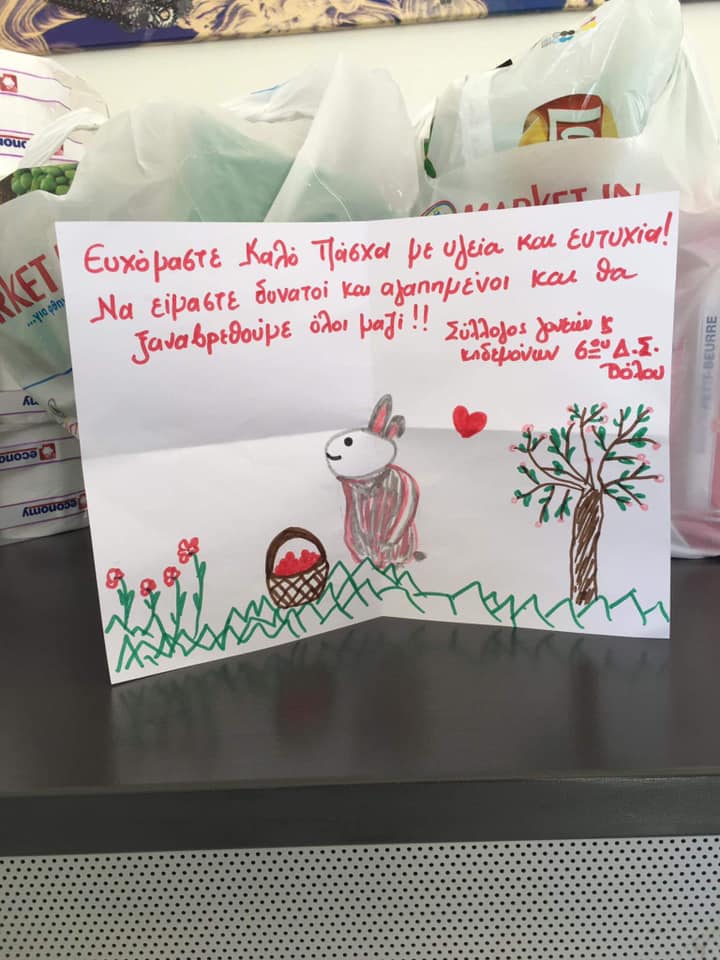 Ευχόμαστε Καλό Πάσχα με υγεία και ευτυχία!
Να είμαστε δυνατοί και αγαπημένοι και θα
ξαναβρεθούμε όλοι μαζί!!
Σύλλογος γονέων &
κηδεμόνων 6ου Δ.Σ.
Βόλου
MARKET IN
RKET I
...για φθη
economy
economy
PETIT-BEURRE